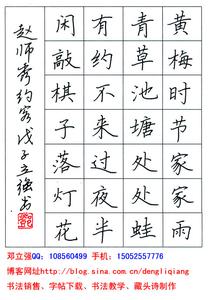 黄梅时节家家雨
青草池塘处处蛙
有约不来过夜半
闲敲棋子落灯花
赵师秀约客戊子立强书
邓立强QQ：108560499 手机：15052557776
博客网址http://blog.sina.com.cn/dengliqiang
书法销售、字帖下载、书法教学、藏头诗制作